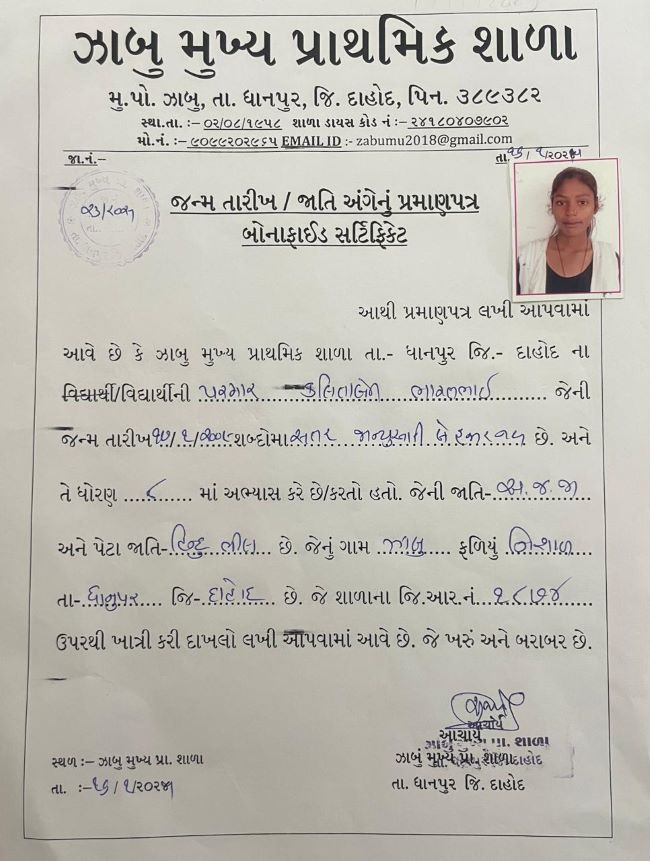 ઝાબુ મુખ્ય પ્રાથમિક શાળા
મુ.પો. ઝાબુ, તા. ધાનપુર, જિ. દાહોદ, પિન. ૩૮૯૩૮૨
સ્થા.તા. :– ૦૨/૦૮/૧૯૫૮ શાળા ડાયસ કોડ નં :– ૨૪૧૮૦૪૦૭૯૦૨
મો.નં. :–૯૦૯૯૨૦૨૯૬૫ EMAIL ID :- zabumu2018@gmail.com
જા.નં.–
જન્મ તારીખ / જાતિ અંગેનું પ્રમાણપત્ર
બોનાફાઈડ સર્ટિફિકેટ
આથી પ્રમાણપત્ર લખી આપવામાં
આવે છે કે ઝાબુ મુખ્ય પ્રાથમિક શાળા તા.- ધાનપુર જિ.- દાહોદ ના
વિદ્યાર્થી/વિદ્યાર્થીની પરમાર ભારતભાઈ જેની
જન્મ તારીખ શબ્દોમા સતર જાન્યુઆરી બે હજાર છે. અને
તે ધોરણ ૮ માં અભ્યાસ કરે છે/કરતો હતો. જેની જાતિ-અ.જ.જા
અને પેટા જાતિ-હિન્દુ ભીલ છે. જેનું ગામ ઝાબુ ફળિયું નિશાળ
તા-ધાનપુર જિ-દાહોદ છે. જે શાળાના જિ.આર.નં ૧૮૭૪
ઉપરથી ખાત્રી કરી દાખલો લખી આપવામાં આવે છે. જે ખરું અને બરાબર છે.
આચાર્ય
સ્થળ :– ઝાબુ મુખ્ય પ્રા. શાળા
ઝાબું મુખ્ય પ્રા. શાળા
તા. :–
તા. ધાનપુર જિ. દાહોદ